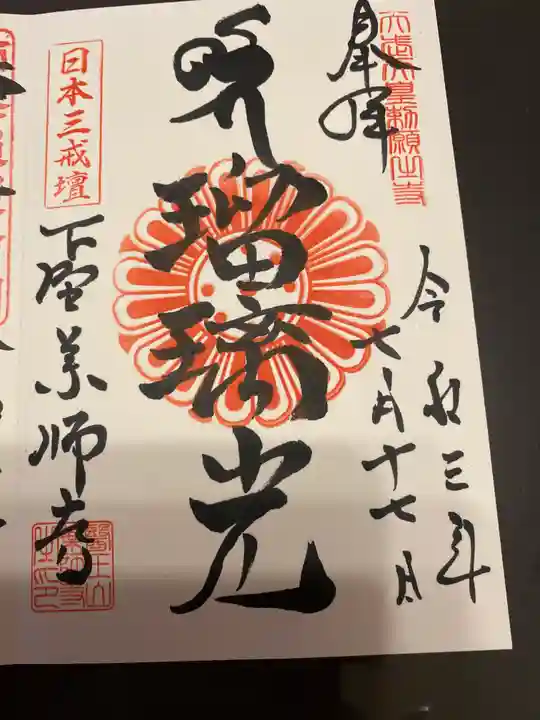 天武天皇勅願之寺
奉拝
令和三年
七月十七日
瑠璃光
日本三戒壇
下野薬師寺
醫王山薬師寺之印